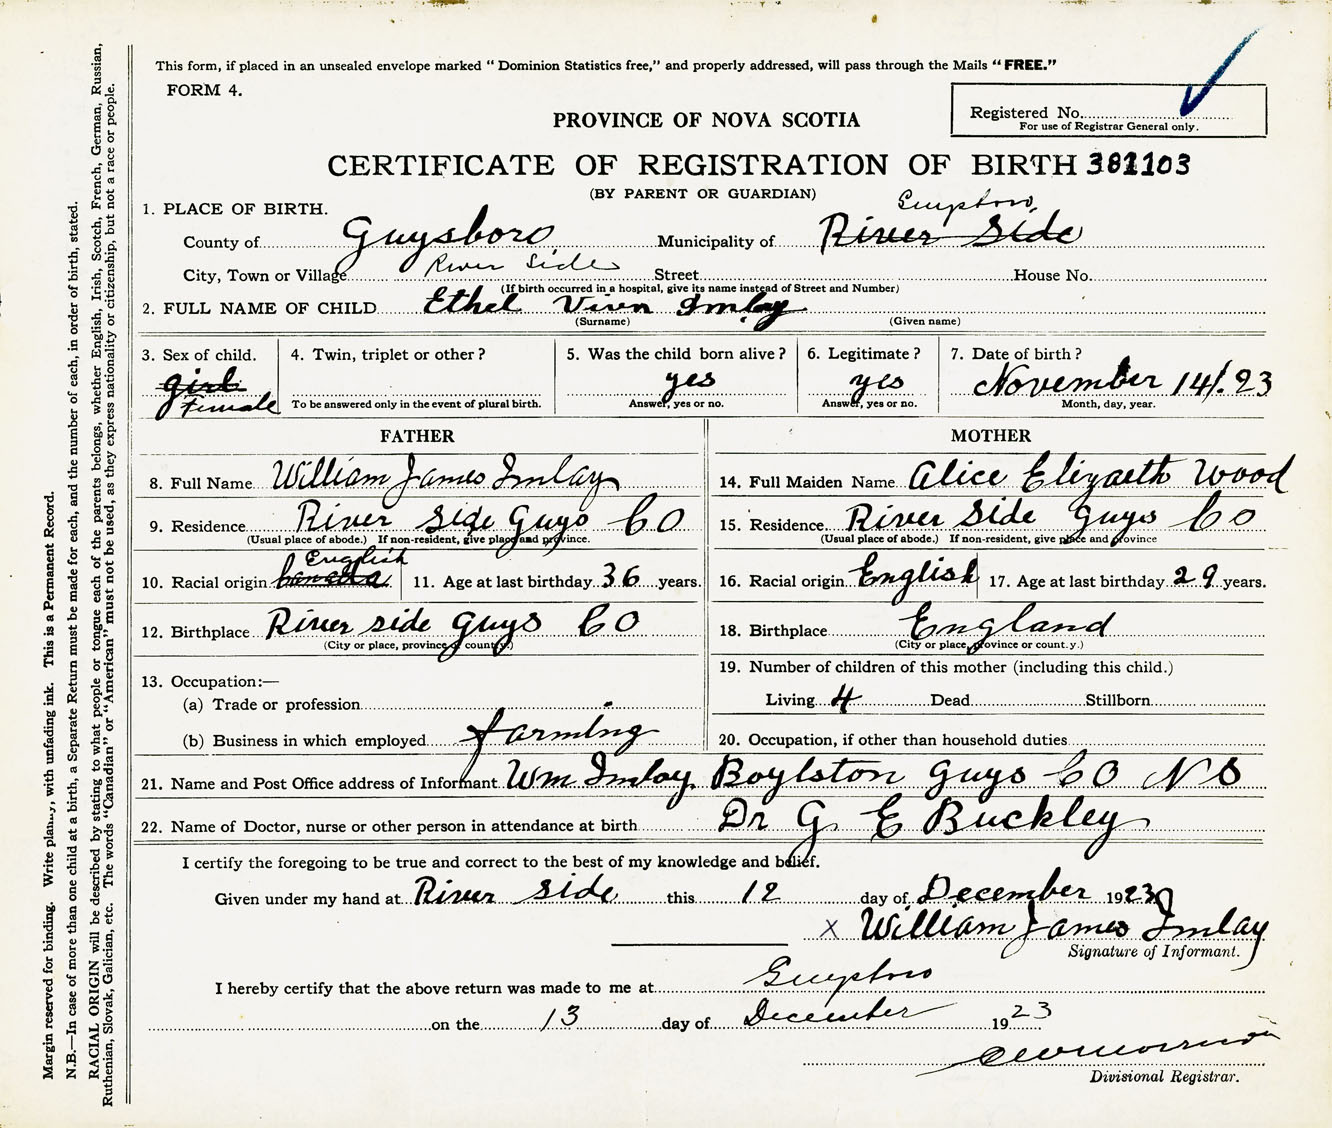 This form, if placed in an unsealed envelope marked " Dominion Statistics free," and properly addressed, will pass through the Mails "FREE."
FORM 4.
Registered No.
For use of Registrar General only.
PROVINCE OF NOVA SCOTIA
CERTIFICATE OF REGISTRATION OF BIRTH 381103
(BY PARENT OR GUARDIAN)
1. PLACE OF BIRTH.
Guysboro
County of Guysboro Municipality of River Side
City, Town or Village River Side Street House No.
(If birth occurred in a hospital, give its name instead of Street and Number)
2. FULL NAME OF CHILD Ethel Viven Imlay
(Surname) (Given name)
3. Sex of child. 4. Twin, triplet or other? 5. Was the child born alive? 6. Legitimate? 7. Date of birth?
girl yes yes November 14/. 23
Female To be answered only in the event of plural birth. Answer, yes or no. Answer, yes or no. Month, day, year.
FATHER MOTHER
8. Full Name William James Imlay 14. Full Maiden Name Alice Elizaeth Wood
9. Residence River Side Guys Co 15. Residence River Side Guys Co
(Usual place of abode.) If non-resident, give place and province. (Usual place of abode.) If non-resident, give place and province
English
10. Racial origin Canada 11. Age at last birthday 36 years. 16. Racial origin English 17. Age at last birthday 29 years.
12. Birthplace River side Guys Co 18. Birthplace England
(City or place, province or county.) (City or place, province or count.y.)
13. Occupation:— 19. Number of children of this mother (including this child.)
(a) Trade or profession Living 4 Dead Stillborn
(b) Business in which employed farming 20. Occupation, if other than household duties
21. Name and Post Office address of Informant Wm Imlay Boylston Guys Co N S
22. Name of Doctor, nurse or other person in attendance at birth Dr G. E Buckley
I certify the foregoing to be true and correct to the best of my knowledge and belief.
Given under my hand at River side this 12 day of December 1923
x William James Imlay
Signature of Informant.
I hereby certify that the above return was made to me at Guysboro
on the 13 day of December 1923
Divisional Registrar.
Margin reserved for binding. Write plainly, with unfading ink. This is a Permanent Record.
N.B.—In case of more than one child at a birth, a Separate Return must be made for each, and the number of each, in order of birth, stated.
RACIAL ORIGIN will be described by stating to what people or tongue each of the parents belongs, whether English, Irish, Scotch, French, German, Russian,
Ruthenian, Slovak, Galician, etc. The words "Canadian" or "American" must not be used, as they express nationality or citizenship, but not a race or people.